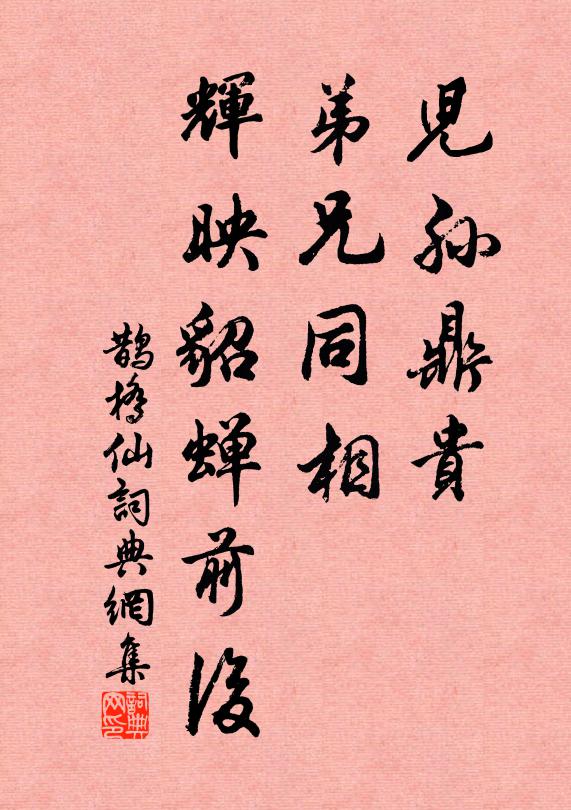 児孫鼎貴
弟兄同相
輝映貂蟬前後
鵲橋仙詞典網集
詞典網印